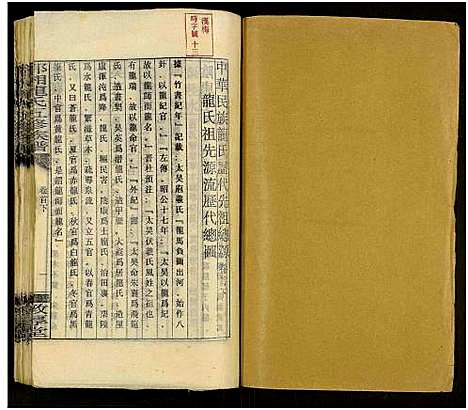 漢梅
時字號十三
中華民族龍氏歷代先祖總源
龍氏祖先源流歷代總圖
據「竹書紀年」記載：「太昊庖羲氏」「龍馬負圖出河，始作八
卦，以龍紀官」。「左傳」昭公十七年：「太昊以龍為紀，
故以龍師而龍名。」晉杜預注：「太昊伏羲氏風姓之祖也，
有龍瑞，故以龍命官。」「外紀」：「太昊命朱襄為飛龍
氏，造書契；昊英為潛龍氏，造甲曆；大庭為居龍氏，造屋
廬；渾沌為降龍氏，驅民害；陰康為土龍氏，治田里；栗陸
為水龍氏，繁滋草木，疏導泉流。又立五官，以春官為青龍
氏，又曰蒼龍氏，夏官為赤龍氏，秋官為白龍氏，冬官為黑
龍氏，中官為黃龍氏，是
龍氏五修族譜
卷首下
敦厚堂